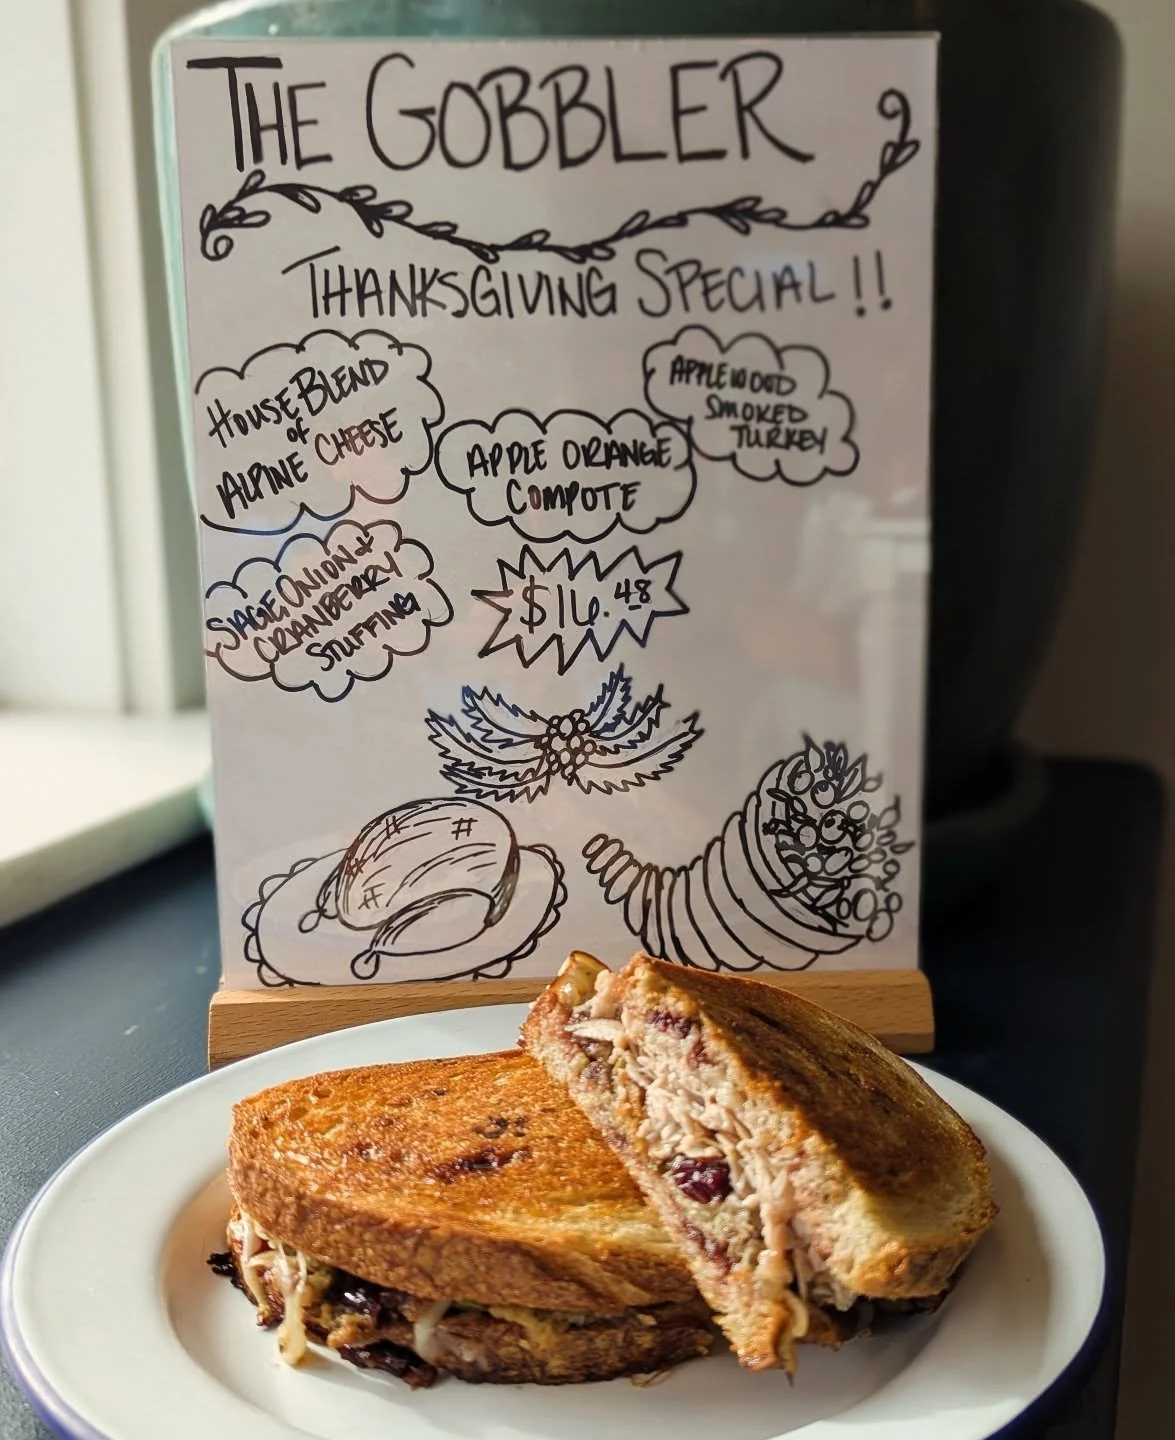 THE GOBBLER
THANKSGIVING SPECIAL!!
HOUSE BLEND
of
ALPINE CHEESE
APPLE ORANGE
COMPOTE
APPLEWOOD
SMOKED
TURKEY
SAGE, ONION &
CRANBERRY
STUFFING
$16.48